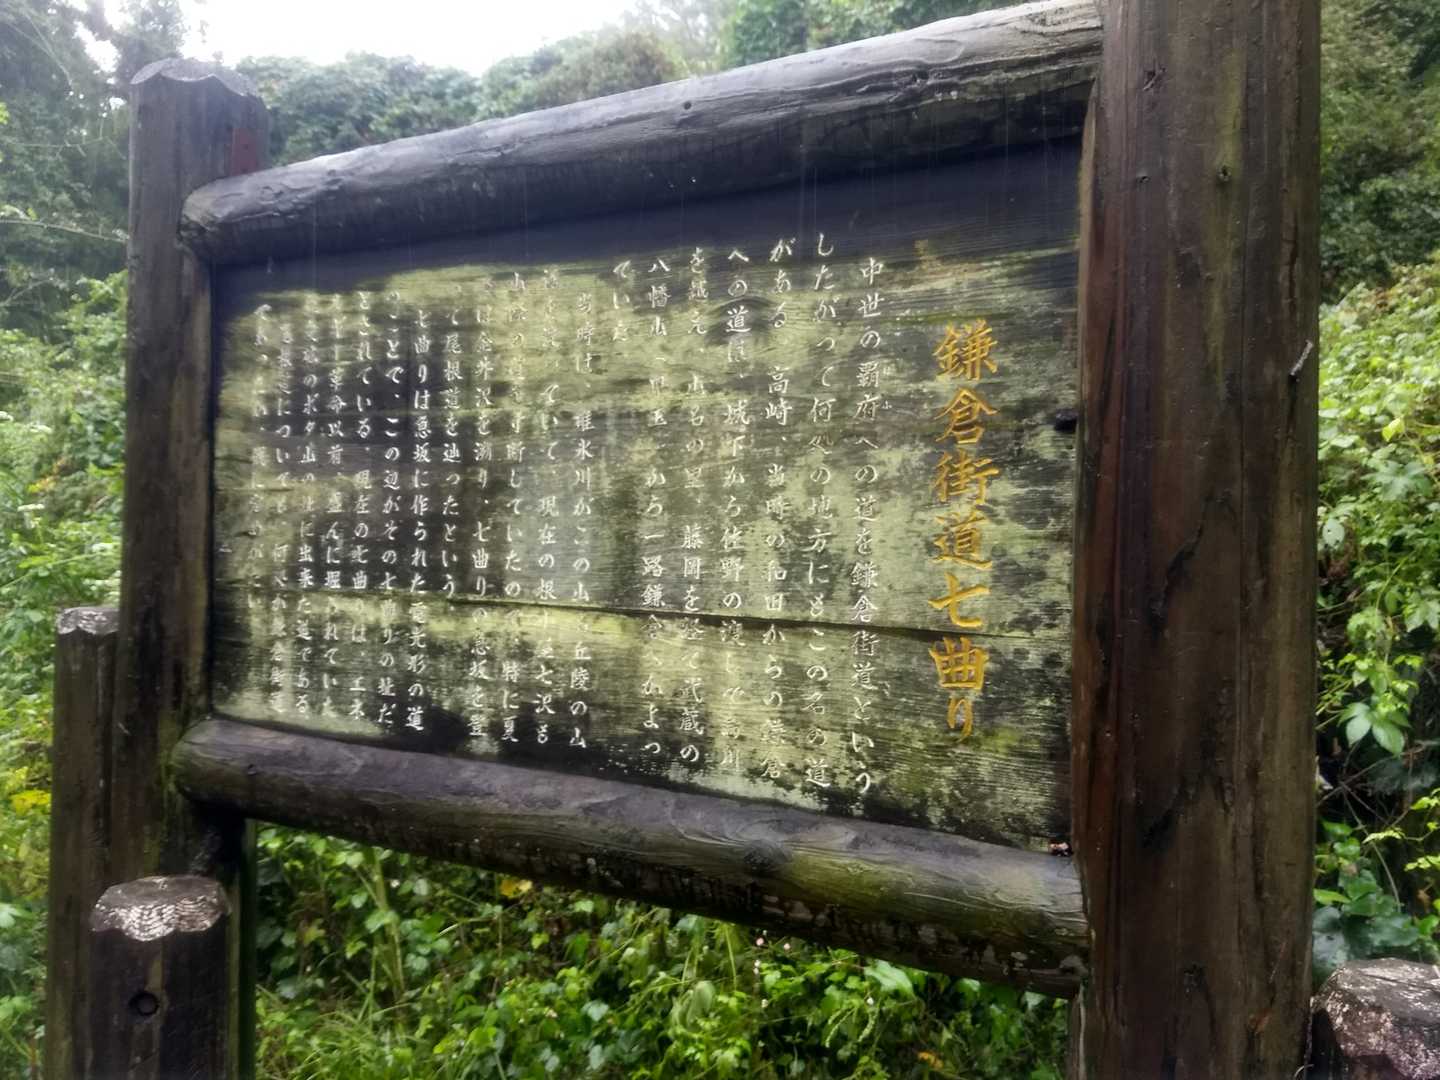 鎌倉街道七曲り
中世の覇府への道を鎌倉街道という
はふ
したがって何処の地方にもこの名の道
がある、高崎、当時の和田からの鎌倉
への道は、城下から佐野の渡しで烏川
を越え、山名の里、藤岡を経て武蔵の
八幡山、児玉、から一路鎌倉へかよっ
ていた
当時は、碓氷川がこの山、丘陵の山
っていて、現在の根小屋七沢も
していたので、特に夏
は金井沢を溯り、七曲りの急坂を登
って尾根道を辿ったという
七曲りは急坂に作られた電光形の道
のことで、この辺がその七曲りの址だ
とされている、現在の七曲りは、エネ
ルギー革命以前、盛んに掘られていた
のボタ山の に出来た道である
街道については、何